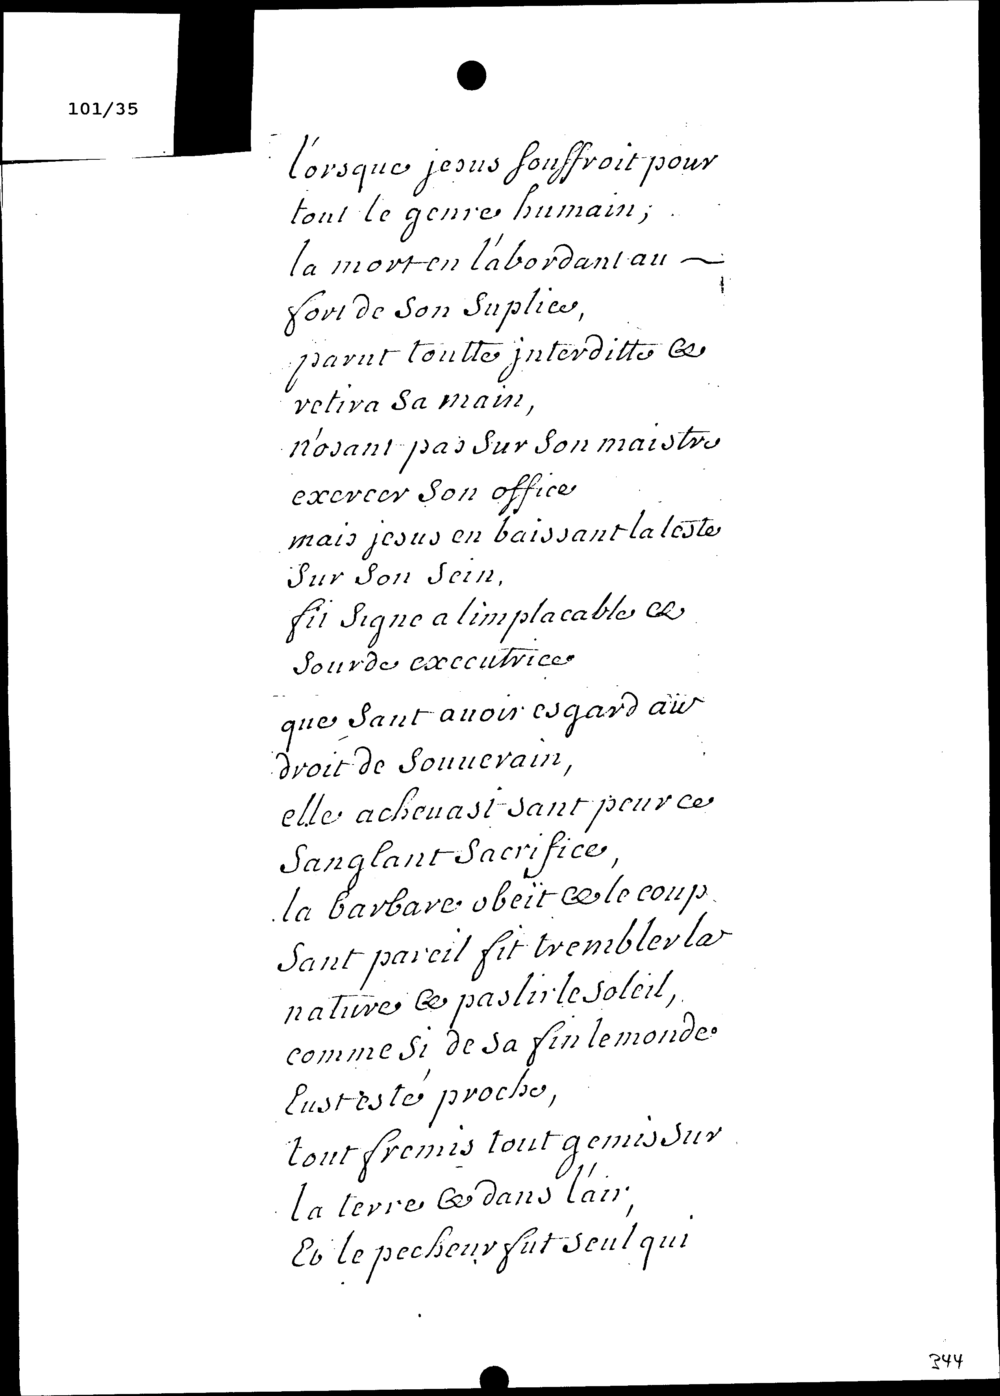 101/35
lorsque jesus souffroit pour
tout le genre humain;
la mort en l'abordant au
fort de son suplice,
parut toutte jnterditte &
retira sa main,
n'osant pas sur son maistre
exercer son office
mais jesus en baissant la teste
sur son sein,
fit signe a limplacable &
sourde executrice
que sant auoir esgard au
droit de souuerain,
elle acheuast sant peur ce
sanglant sacrifice,
la barbare obeït & le coup
sant pareil fit trembler la
nature & paslir le soleil,
comme si de sa fin le monde
eust esté proche,
tout fremis tout gemis sur
la terre & dans l'air,
Et le pecheur fut seul qui
344